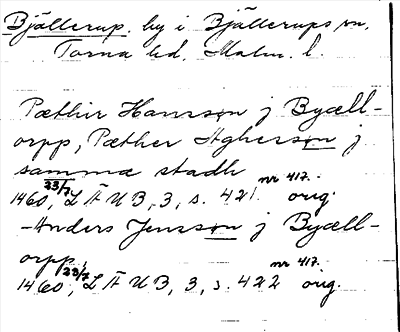 Bjällerup. by i Bjällerups sn.
Torna hd. Malm. l.
Pæthir Hansson j Byæll-
orpp, Pæther Agherson j
samma stadh
23/7 1460, LÄUB, 3, s. 421. nr 417. orig.
-Anders Jensson j Byæll-
orpp
23/7 1460, LÄUB, 3, s. 422 nr 417. orig.